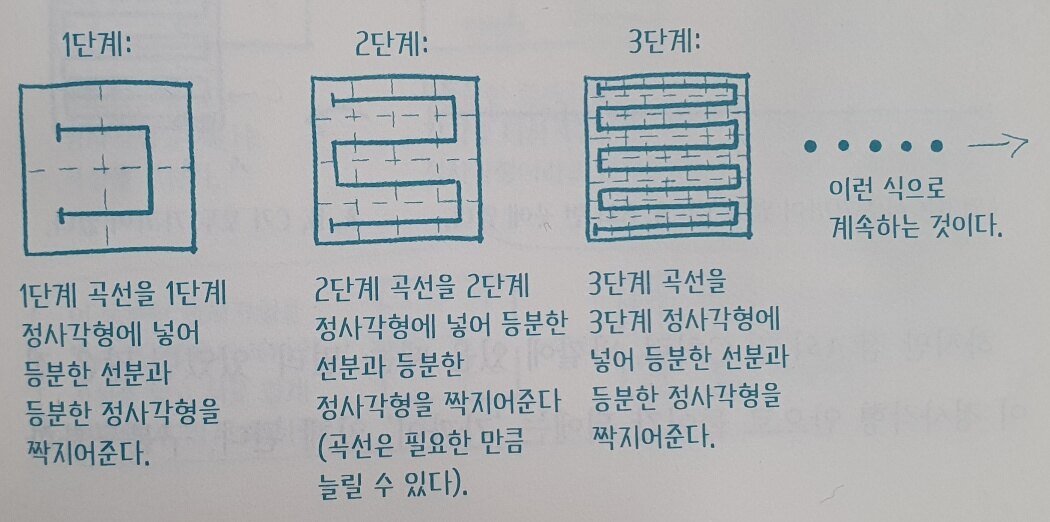 1단계:
2단계:
3단계:
1단계 곡선을 1단계
정사각형에 넣어
등분한 선분과
등분한 정사각형을
짝지어준다.
2단계 곡선을 2단계
정사각형에 넣어 등분한
선분과 등분한
정사각형을 짝지어준다
(곡선은 필요한 만큼
늘릴 수 있다).
3단계 곡선을
3단계 정사각형에
넣어 등분한 선분과
등분한 정사각형을
짝지어준다.
이런 식으로
계속하는 것이다.